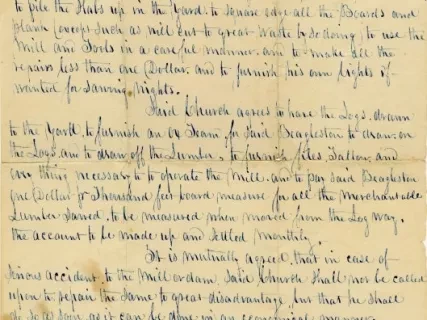 to pile the Slabs up in the Yard. to square edge all the Boards and
plank except such as will cut to great waste by so doing, to use the
Mill and Tools in a careful manner. and to make all the
repairs less than one Dollar. and to furnish his own lights if
wanted for Sawing nights.
Said Church agrees to have the Logs drawn
to the Yard, to furnish an Ox Team for Said Beagleston to draw on
the Logs and to draw off the Lumber, to furnish files, Tallow, and
every thing necessary to operate the Mill. and to pay said Beagleston
One Dollar pr Thousand feet board measure for all the Merchantable
Lumber Sawed. to be measured when moved from the Log way.
the account to be made up and Settled Monthly.
It is mutually agreed, that in case of
serious accident, to the Mill or dam, Said Church shall not be called
upon to repair the Same to great disadvantage, but that he shall
do so as soon as it can be done in an economical manner.